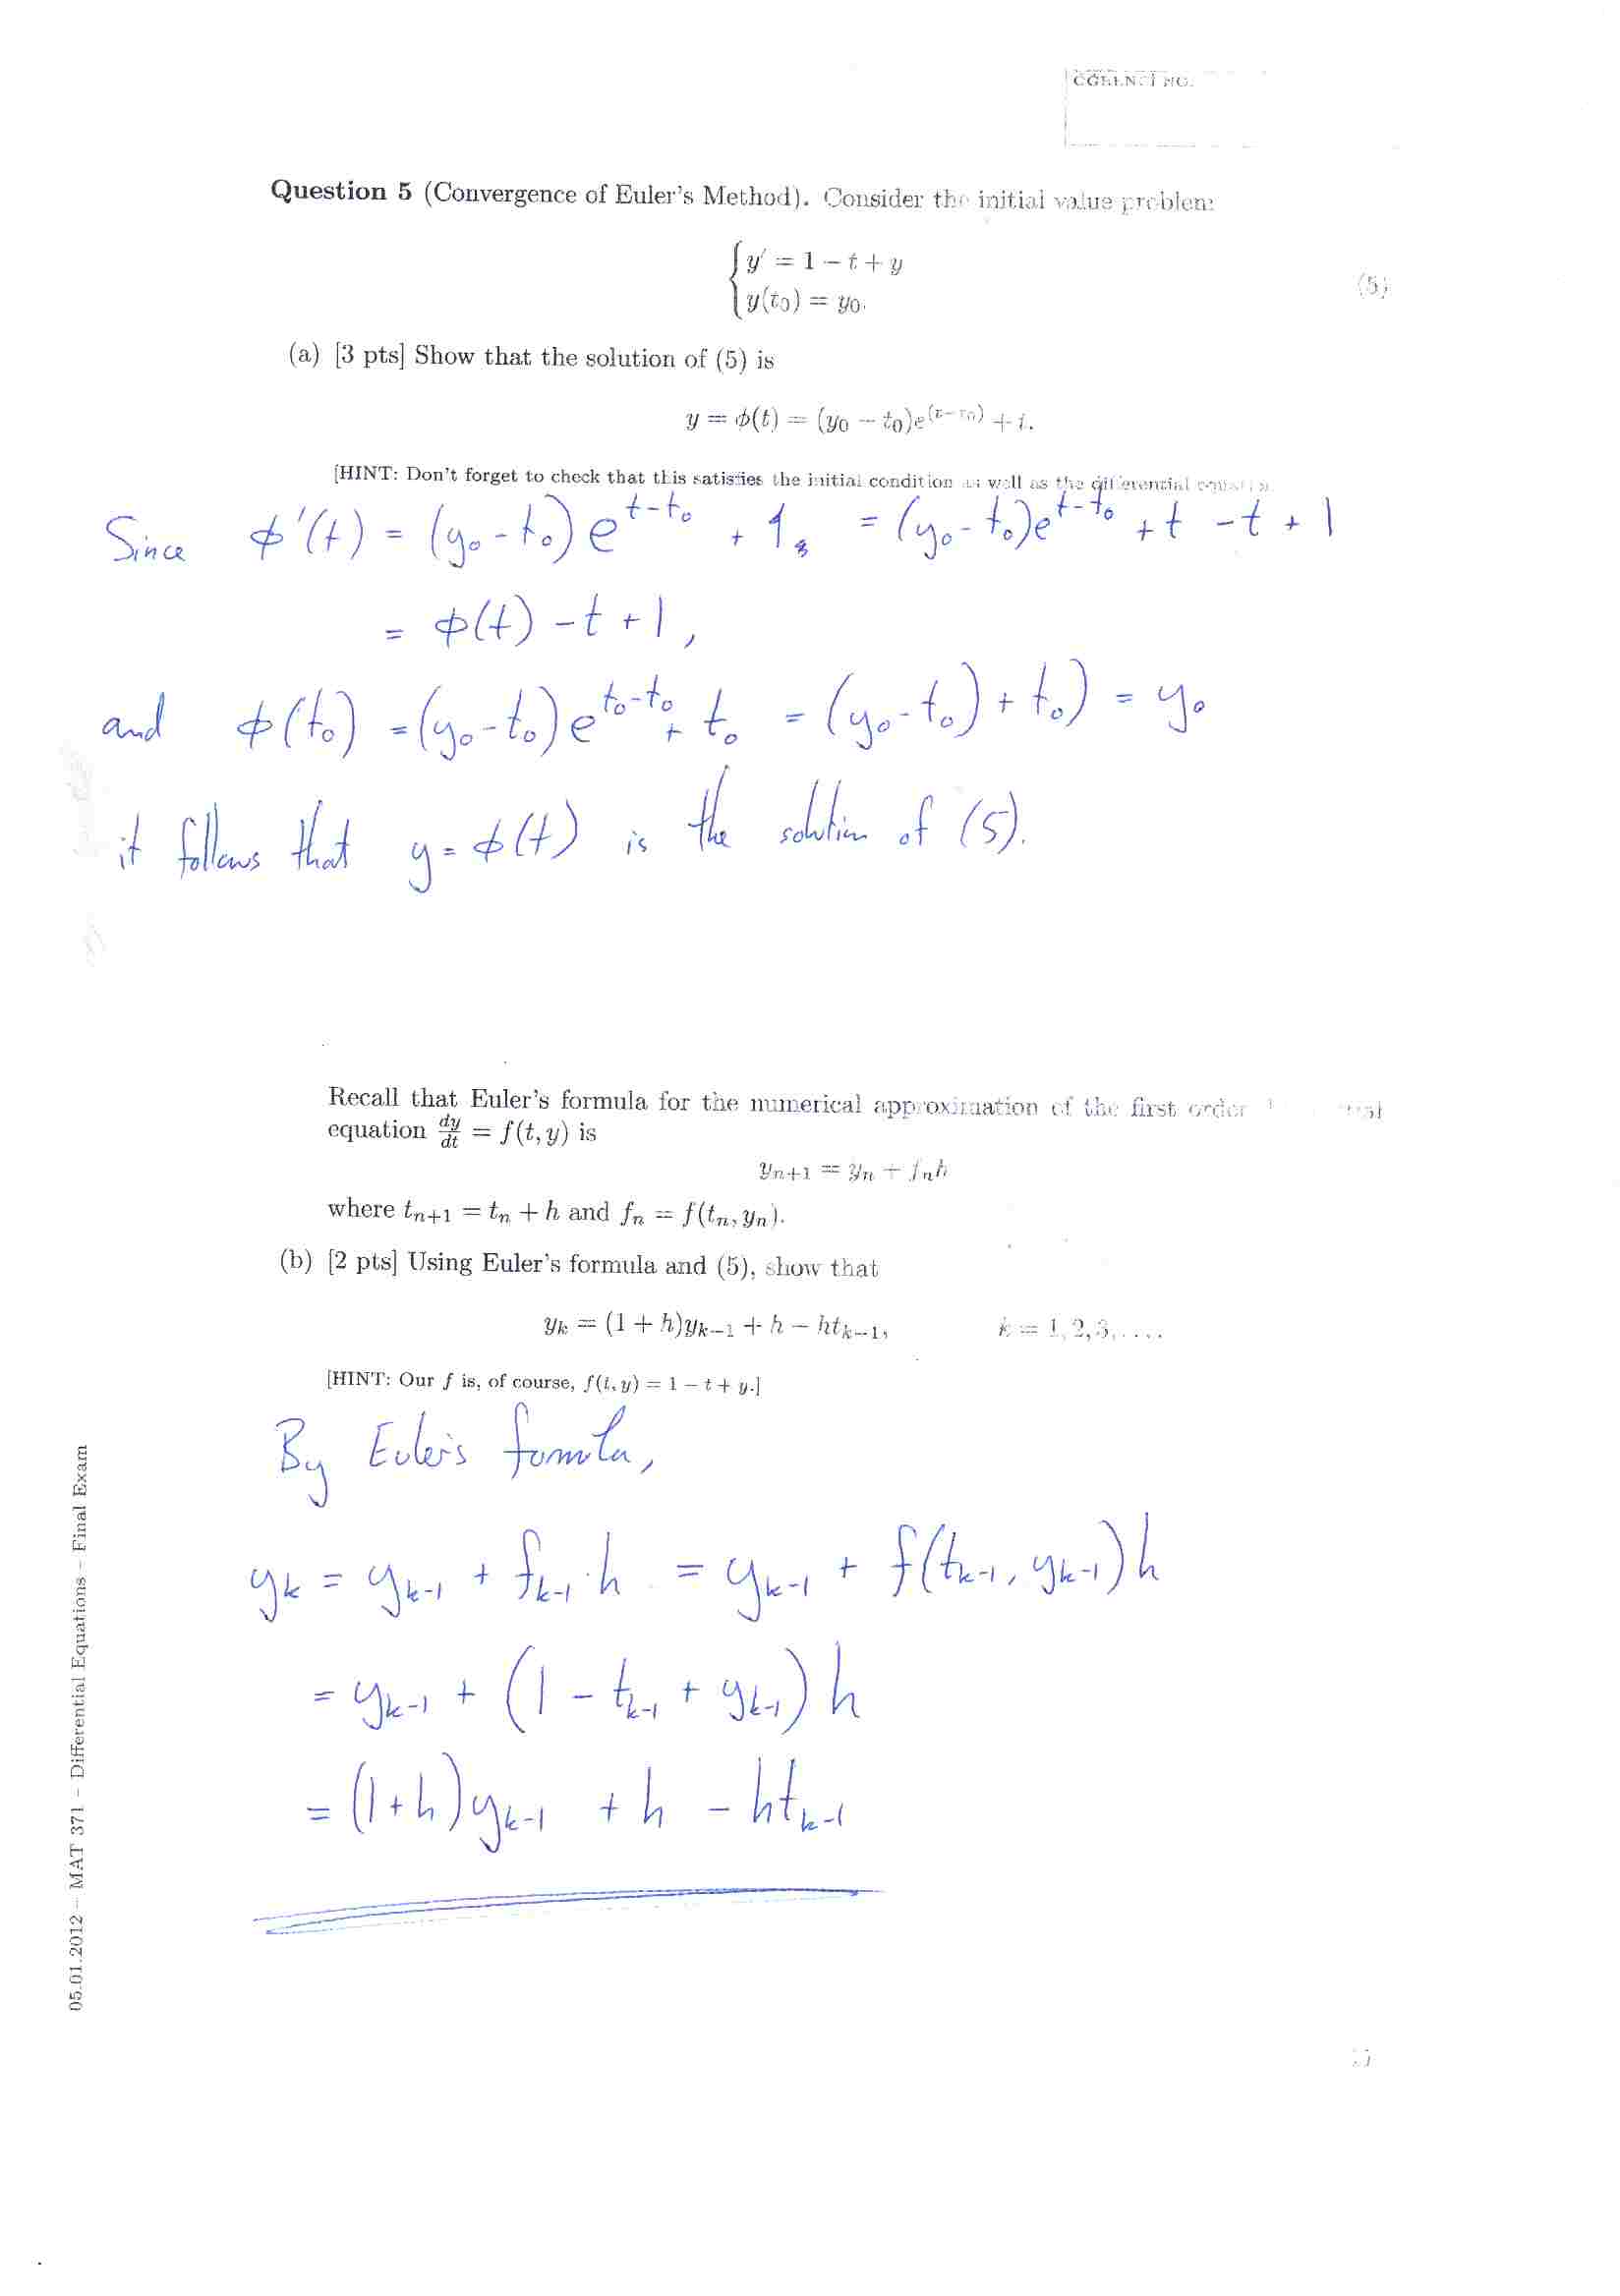 Question 5 (Convergence of Euler's Method). Consider the initial value problem
{ y' = 1 − t + y
y(t₀) = y₀.
(5)
(a) [3 pts] Show that the solution of (5) is
y = ϕ(t) = (y₀ − t₀)e^(t−t₀) + t.
[HINT: Don't forget to check that this satisfies the initial condition as well as the differential
Since ϕ'(t) = (y₀ - t₀) e^(t-t₀) + 1, = (y₀ - t₀)e^(t-t₀) + t - t + 1
= ϕ(t) - t + 1,
and ϕ(t₀) = (y₀ - t₀) e^(t₀-t₀) + t₀ = (y₀ - t₀) + t₀) = y₀
it follows that y = ϕ(t) is the solution of (5).
Recall that Euler's formula for the numerical approximation of the first order
equation dy/dt = f(t, y) is
yₙ₊₁ = yₙ + fₙh
where tₙ₊₁ = tₙ + h and fₙ = f(tₙ, yₙ).
(b) [2 pts] Using Euler's formula and (5), show that
yₖ = (1 + h)yₖ₋₁ + h − htₖ₋₁, k = 1, 2, 3, ....
[HINT: Our f is, of course, f(t, y) = 1 − t + y.]
By Euler's formula,
yₖ = yₖ₋₁ + fₖ₋₁·h = yₖ₋₁ + f(tₖ₋₁, yₖ₋₁)h
= yₖ₋₁ + (1 - tₖ₋₁ + yₖ₋₁) h
= (1+h)yₖ₋₁ + h - htₖ₋₁
05.01.2012 – MAT 371 – Differential Equations – Final Exam